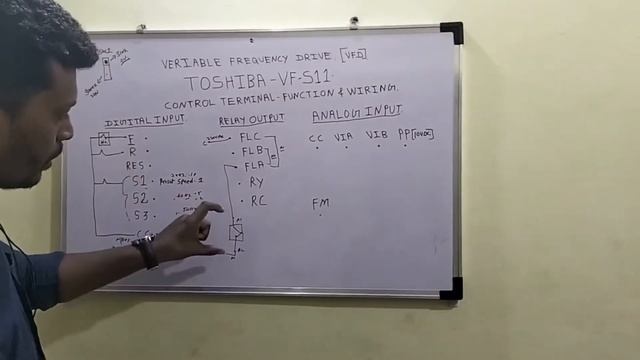 VERIABLE FREQUENCY DRIVE [VFD]
TOSHIBA-VF-S11
CONTROL TERMINAL-FUNCTION & WIRING.
DIGITAL INPUT
F
R
RES
S1 Preset Speed:1
S2
S3
CC
RELAY OUTPUT
FLC
FLB
FLA
RY
RC
ANALOG INPUT
CC VIA VIB PP[10VDC]
FM